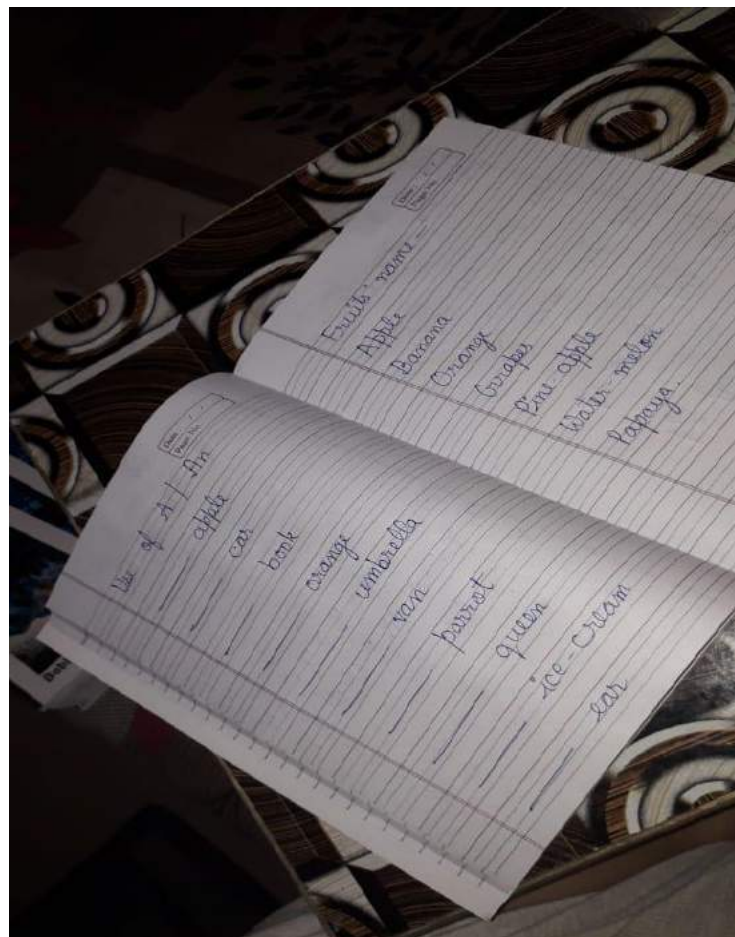 Date : / /
Page No.
Use of A / An
___ apple
___ car
___ book
___ orange
___ umbrella
___ van
___ parrot
___ queen
___ ice-cream
___ ear
Date : / /
Page No.
Fruits' name -
Apple
Banana
Orange
Grapes
Pine-apple
Water-melon
Papaya.